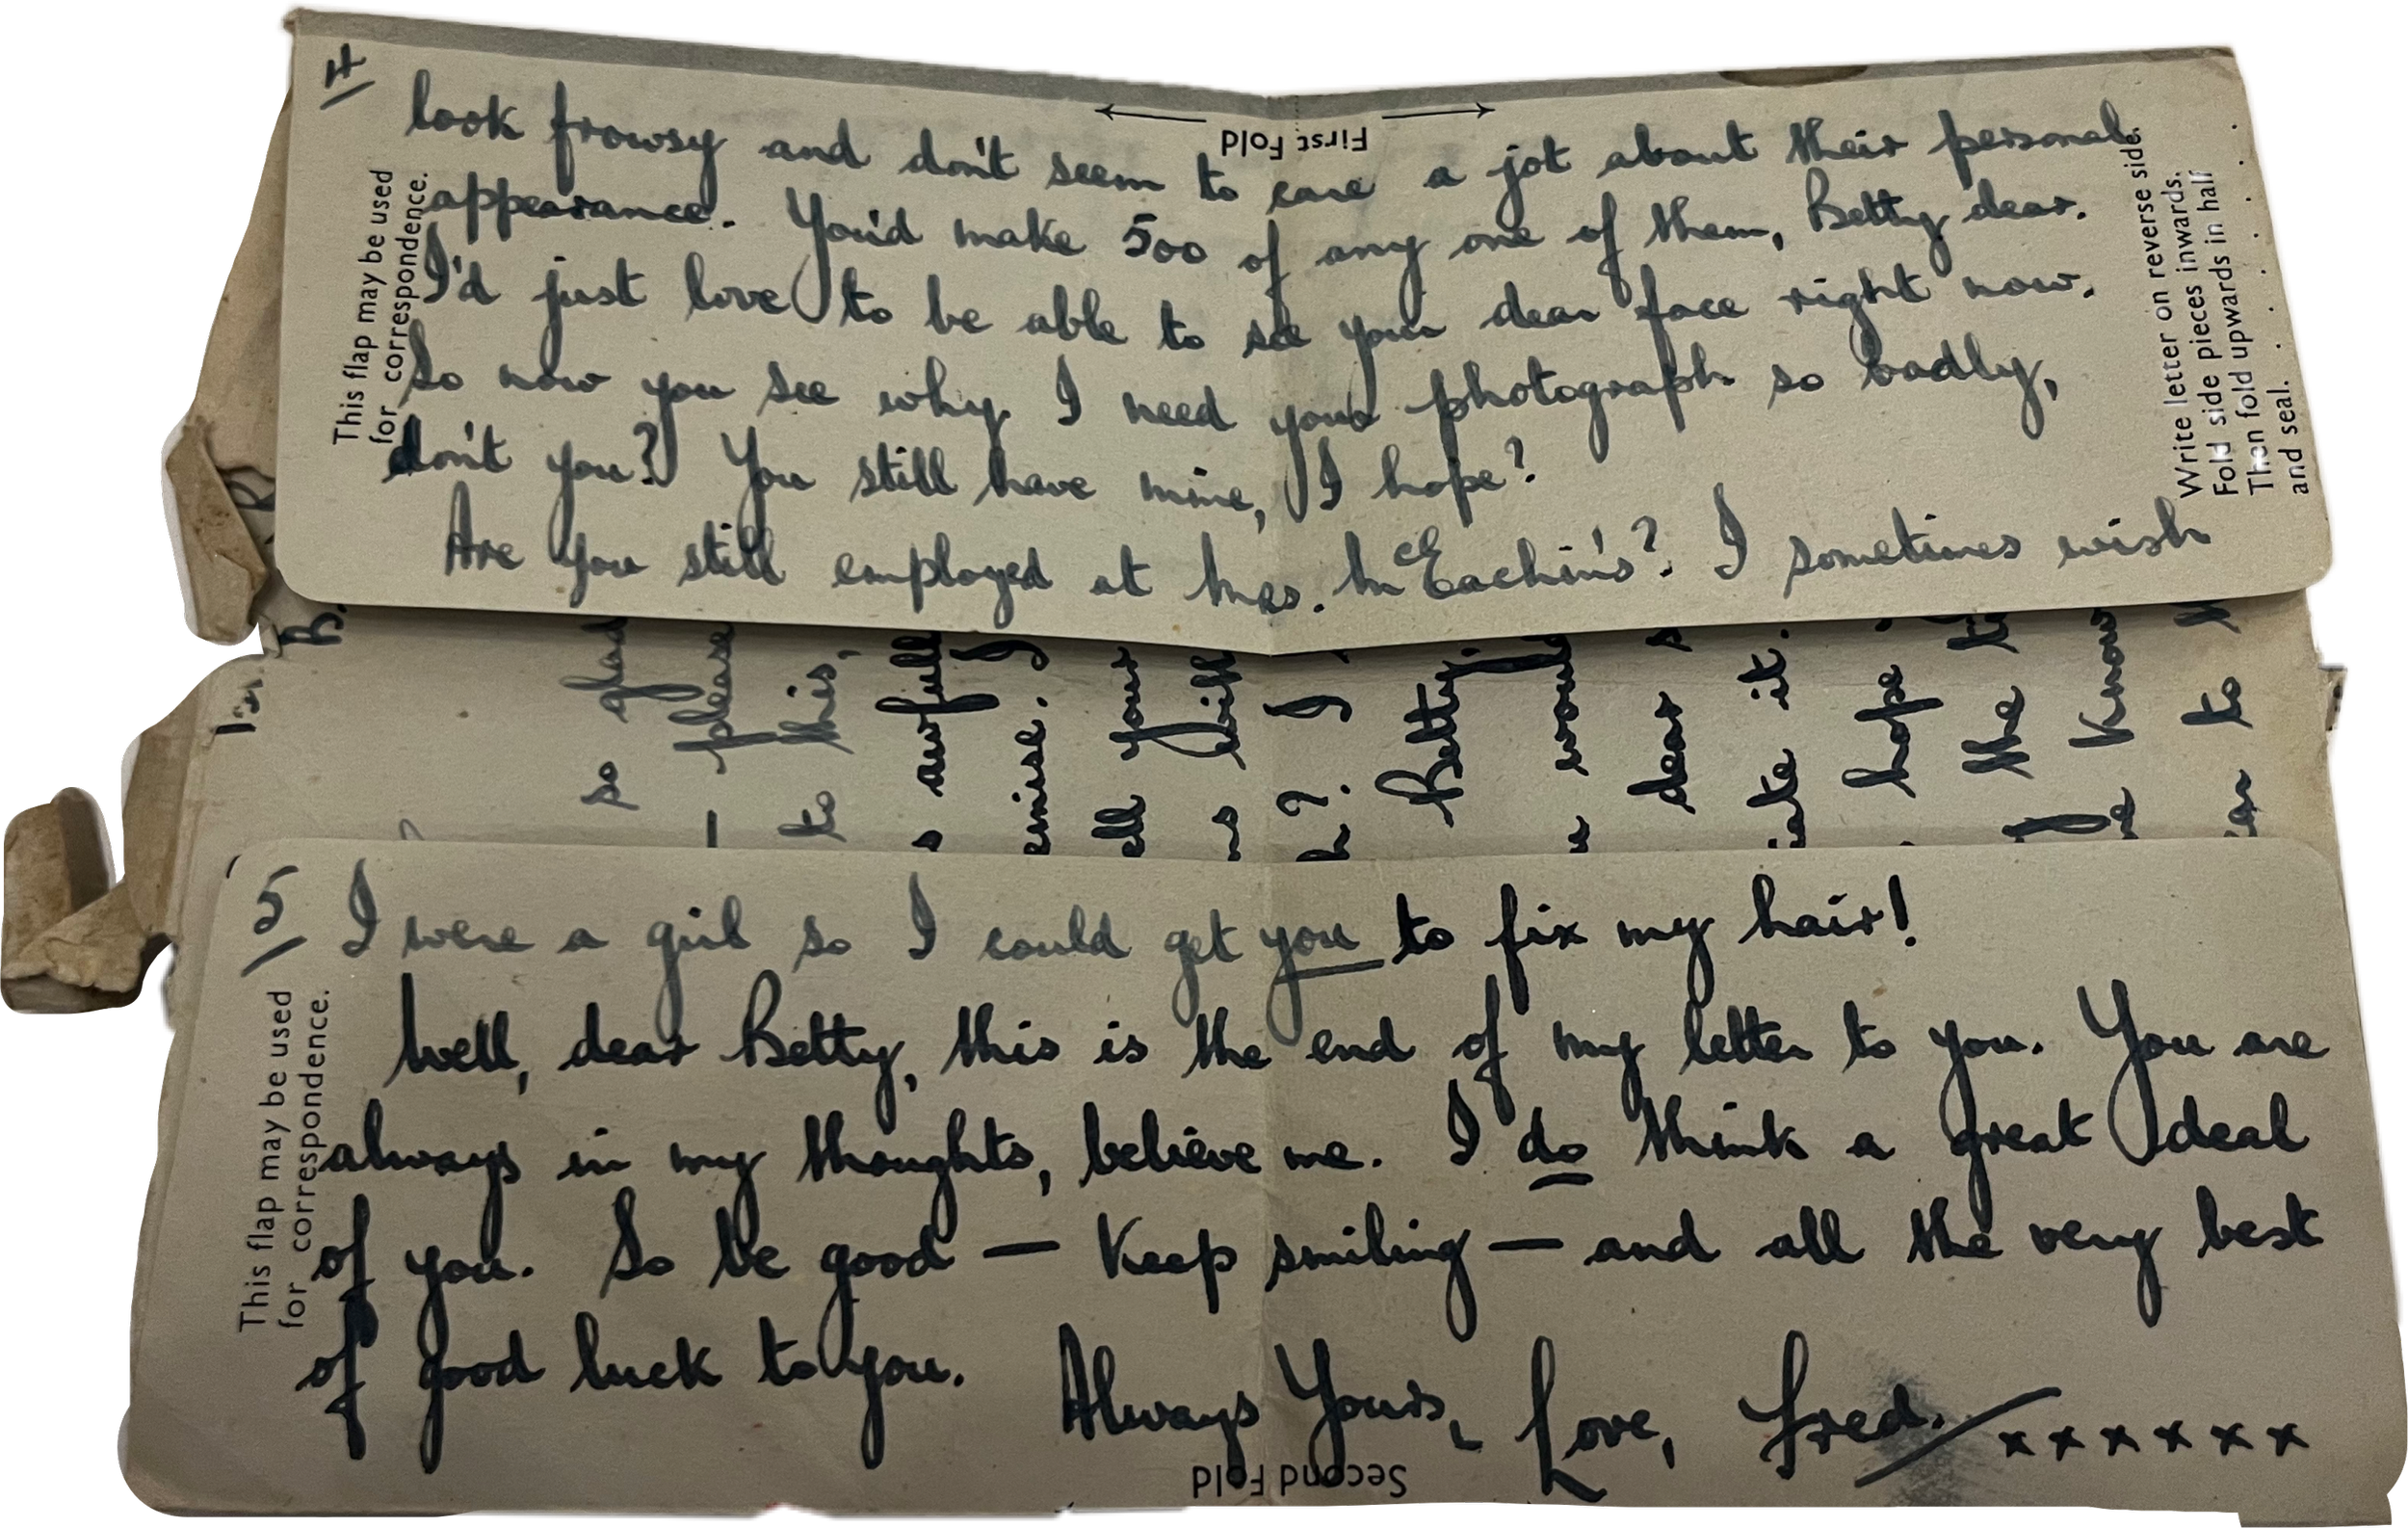 4
First Fold
look frowsy and don't seem to care a jot about their personal
appearance. You'd make 500 of any one of them, Betty dear.
I'd just love to be able to see your dear face right now.
So now you see why I need your photograph so badly,
don't you? You still have mine, I hope?
Are you still employed at Mrs. McEachin's? I sometimes wish
This flap may be used
for correspondence.
Write letter on reverse side.
Fold side pieces inwards.
Then fold upwards in half
and seal.
so glad
please
to this,
awfull
I
your
with
? I
Betty,
would
dear
it.
hope
the
know
to
5
I were a girl so I could get you to fix my hair!
Well, dear Betty, this is the end of my letter to you. You are
always in my thoughts, believe me. I do think a great deal
of you. So be good — keep smiling — and all the very best
of good luck to you.
Always Yours, Love, Fred. xxxxxx
This flap may be used
for correspondence.
Second Fold